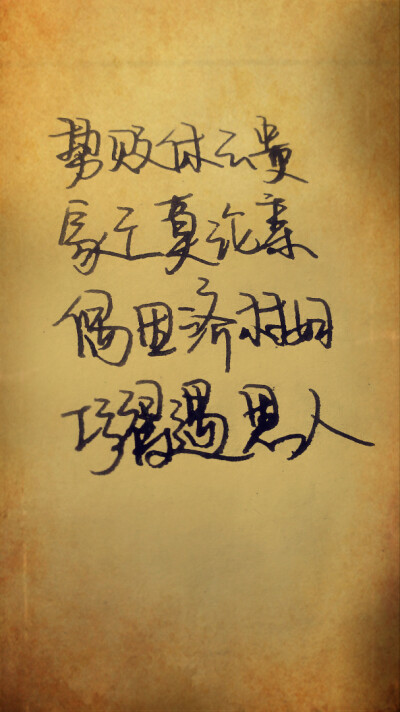 势败休云贵
家亡莫论亲
偶因济村妇
巧得遇恩人